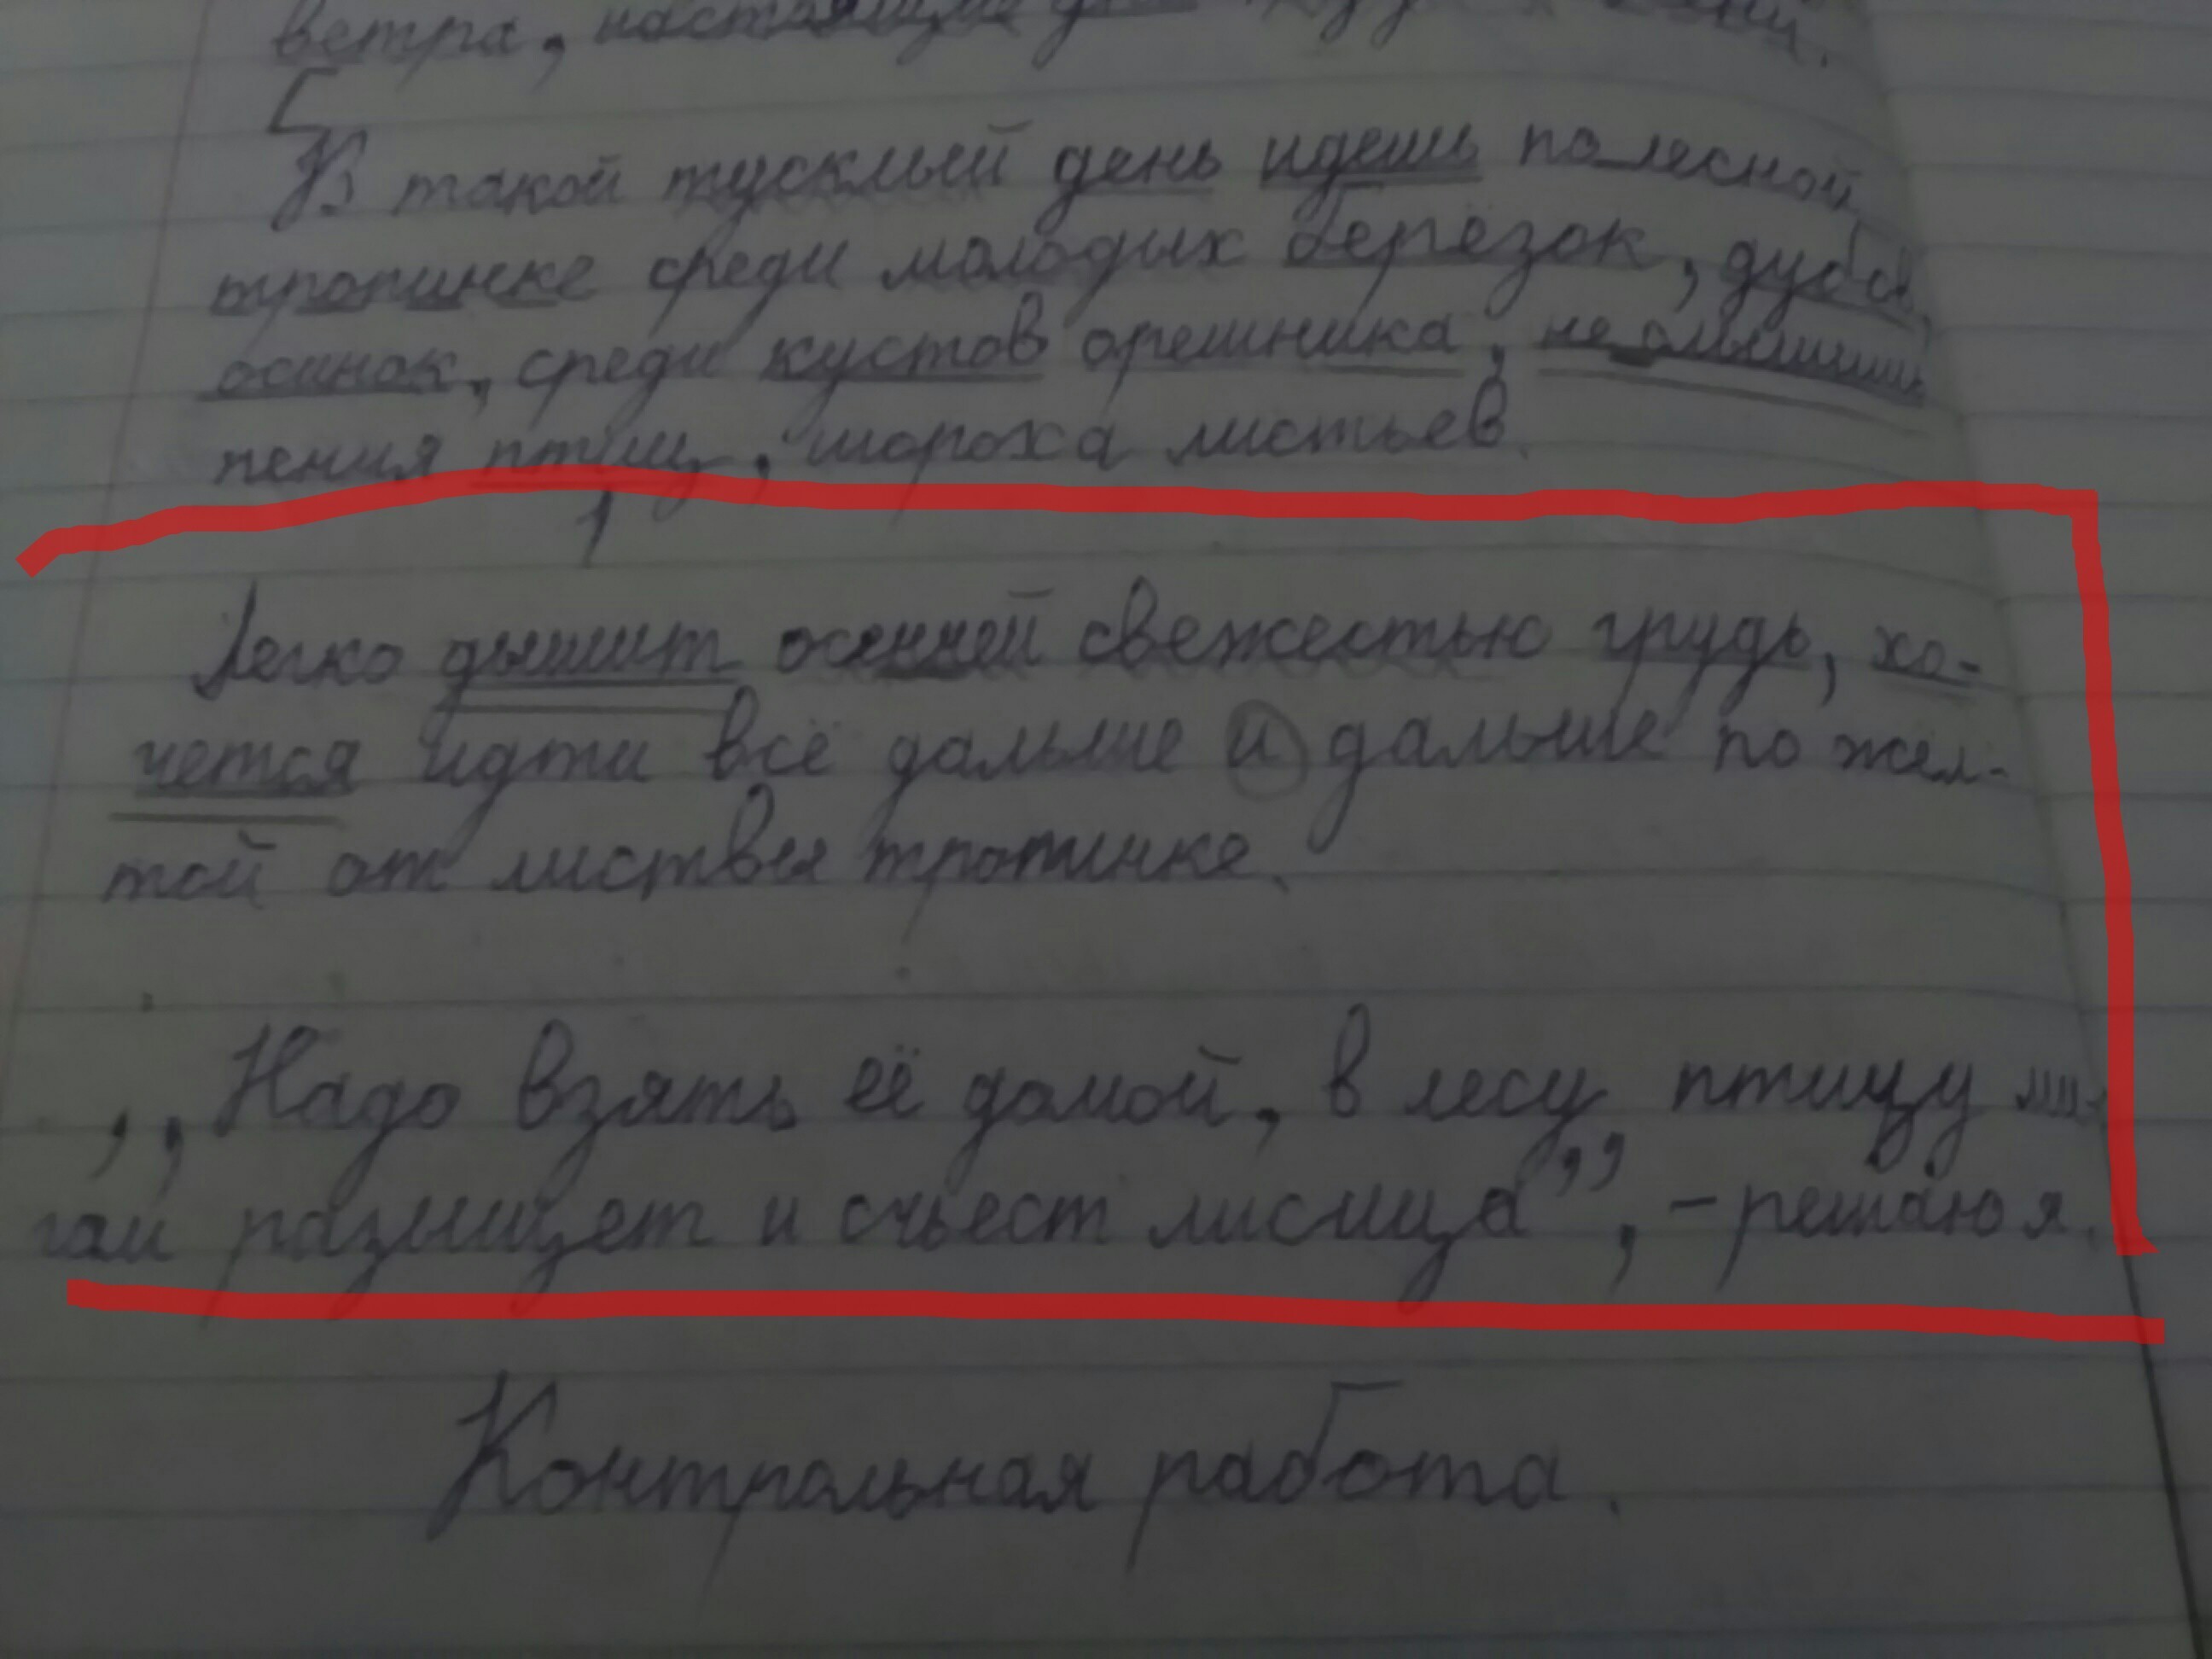 ветра, настоящий
В такой тусклый день идешь по лесной
тропинке среди молодых берёзок, дубов,
осинок, среди кустов орешника, не слышишь
пения птиц, шороха листьев.
1
Легко дышит осенней свежестью грудь, хо-
чется идти всё дальше и дальше по жёл-
той от листвы тропинке.
,,Надо взять её домой, в лесу птицу ми-
гом разыщет и счьест лисица”, - решаю я.
Контрольная работа.